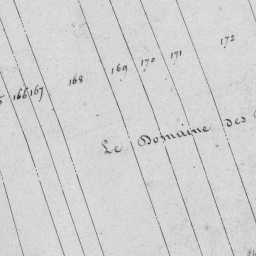 166 167 168 169 170 171 172
Le Domaine des